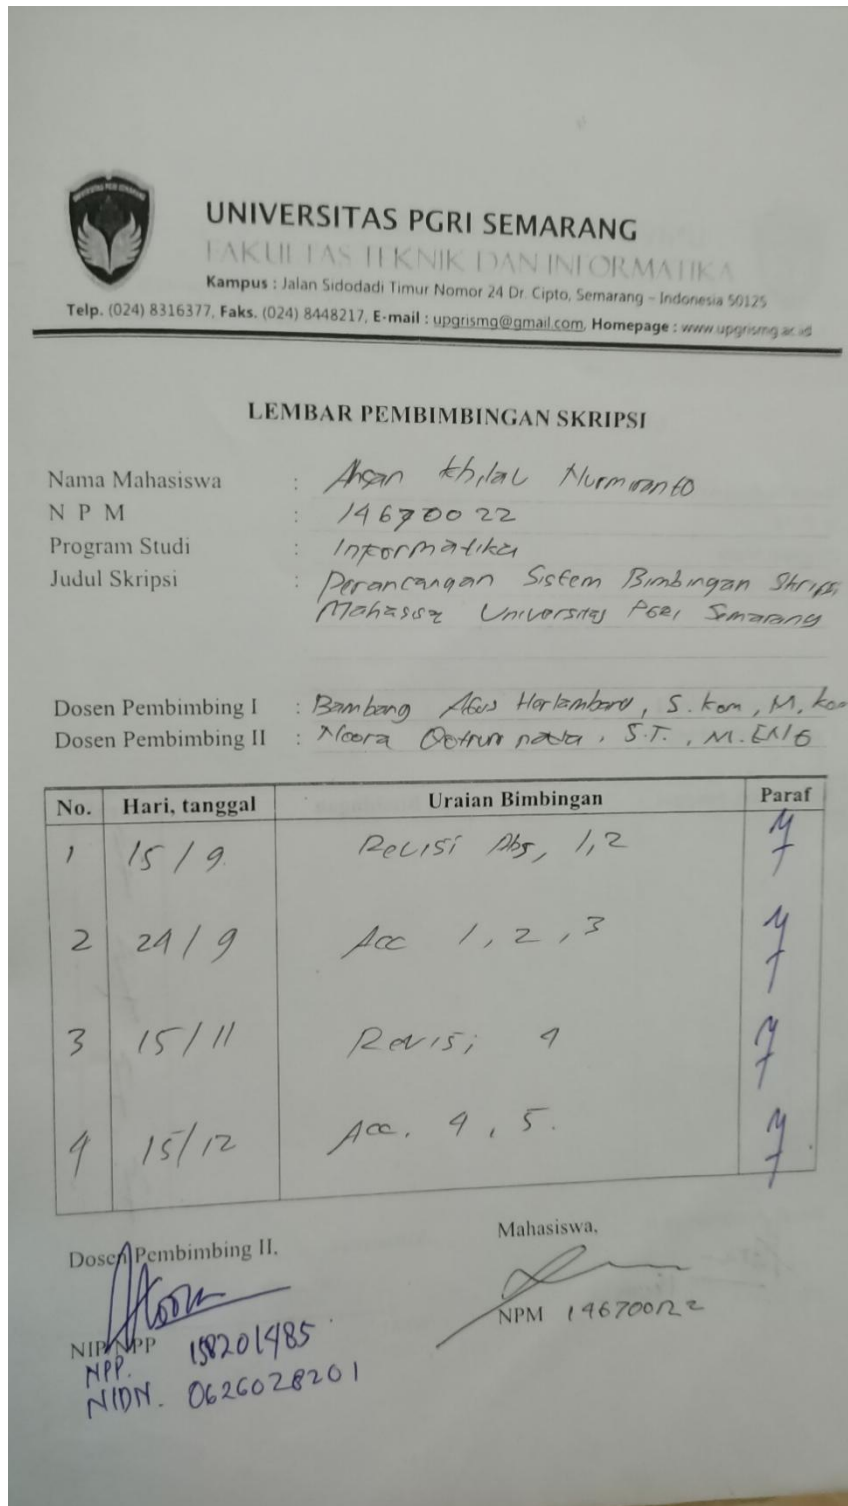 UNIVERSITAS PGRI SEMARANG
FAKULTAS TEKNIK DAN INFORMATIKA
Kampus : Jalan Sidodadi Timur Nomor 24 Dr. Cipto, Semarang – Indonesia 50125
Telp. (024) 8316377, Faks. (024) 8448217, E-mail : upgrismg@gmail.com, Homepage : www.upgrismg.ac.id
LEMBAR PEMBIMBINGAN SKRIPSI
Nama Mahasiswa : Ahsan Nurmiranto
N P M : 14670022
Program Studi : Informatika
Judul Skripsi : Perancangan Sistem Bimbingan Skripsi
Universitas PGRI Semarang
Dosen Pembimbing I : Bambang Agus Herlambang, S.Kom, M.Kom
Dosen Pembimbing II : Noora S.T., M.ENG
No. Hari, tanggal Uraian Bimbingan Paraf
1 15/9 Revisi Abs, 1,2
2 24/9 Acc 1, 2, 3
3 15/11 Revisi 4
4 15/12 Acc. 4, 5.
Dosen Pembimbing II, Mahasiswa,
NIP/NPP NPM 14670022
NPP. 158201485
NIDN. 0626028201